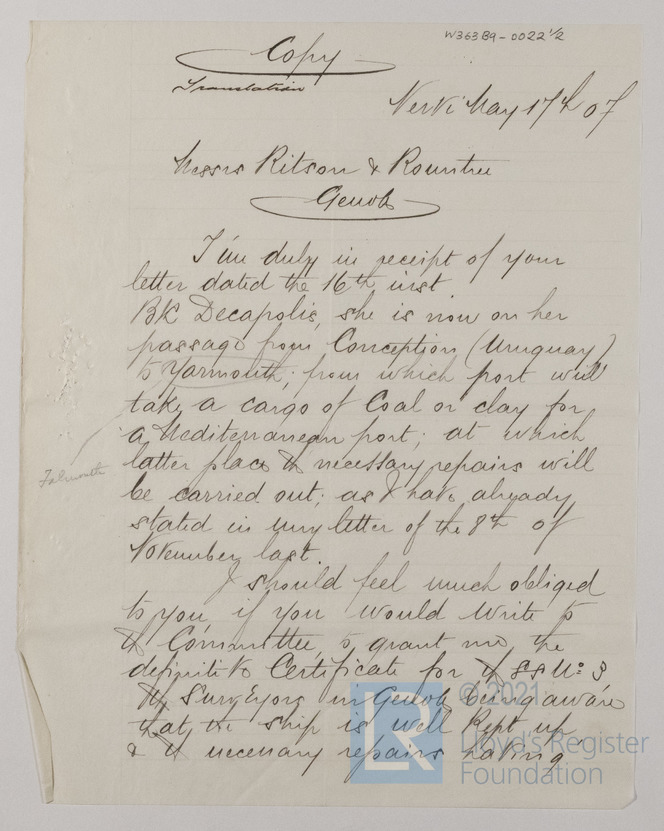 W363 89-0022 1/2
Copy
Translation
Nervi May 17th 07
Messrs Ritson & Rountree
Genoa
I'm duly in receipt of your
letter dated the 16th inst
BK Decapolis, she is now on her
passage from Conception (Uruguay)
to Yarmouth; from which port will
take a cargo of Coal or clay for
a Mediterranean port; at which
Falmouth
latter place the necessary repairs will
be carried out; as I have already
stated in my letter of the 8th of
November last.
I should feel much obliged
to you, if you would write to
the Committee, to grant me, the
definitive Certificate for the SS No: 3
the Surveyors in Genoa being aware
that the ship is well kept up,
& the necessary repairs having
© 2021
Lloyd's Register
Foundation
LR